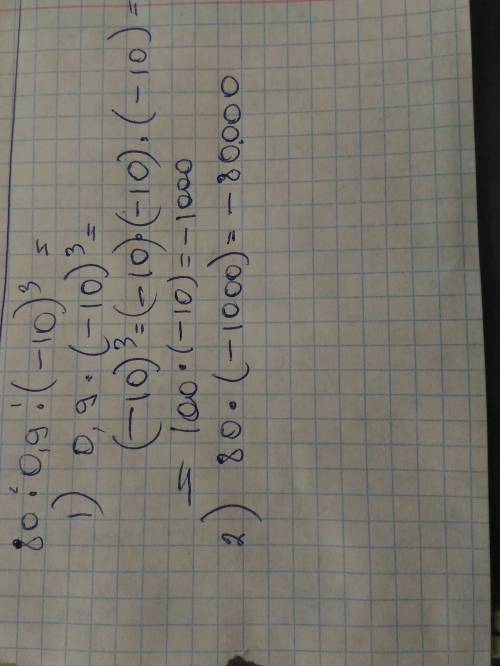 80 · 0,9 · (-10)³ =
1) 0,9 · (-10)³ =
(-10)³ = (-10) · (-10) · (-10) =
= 100 · (-10) = -1000
2) 80 · (-1000) = -80.000